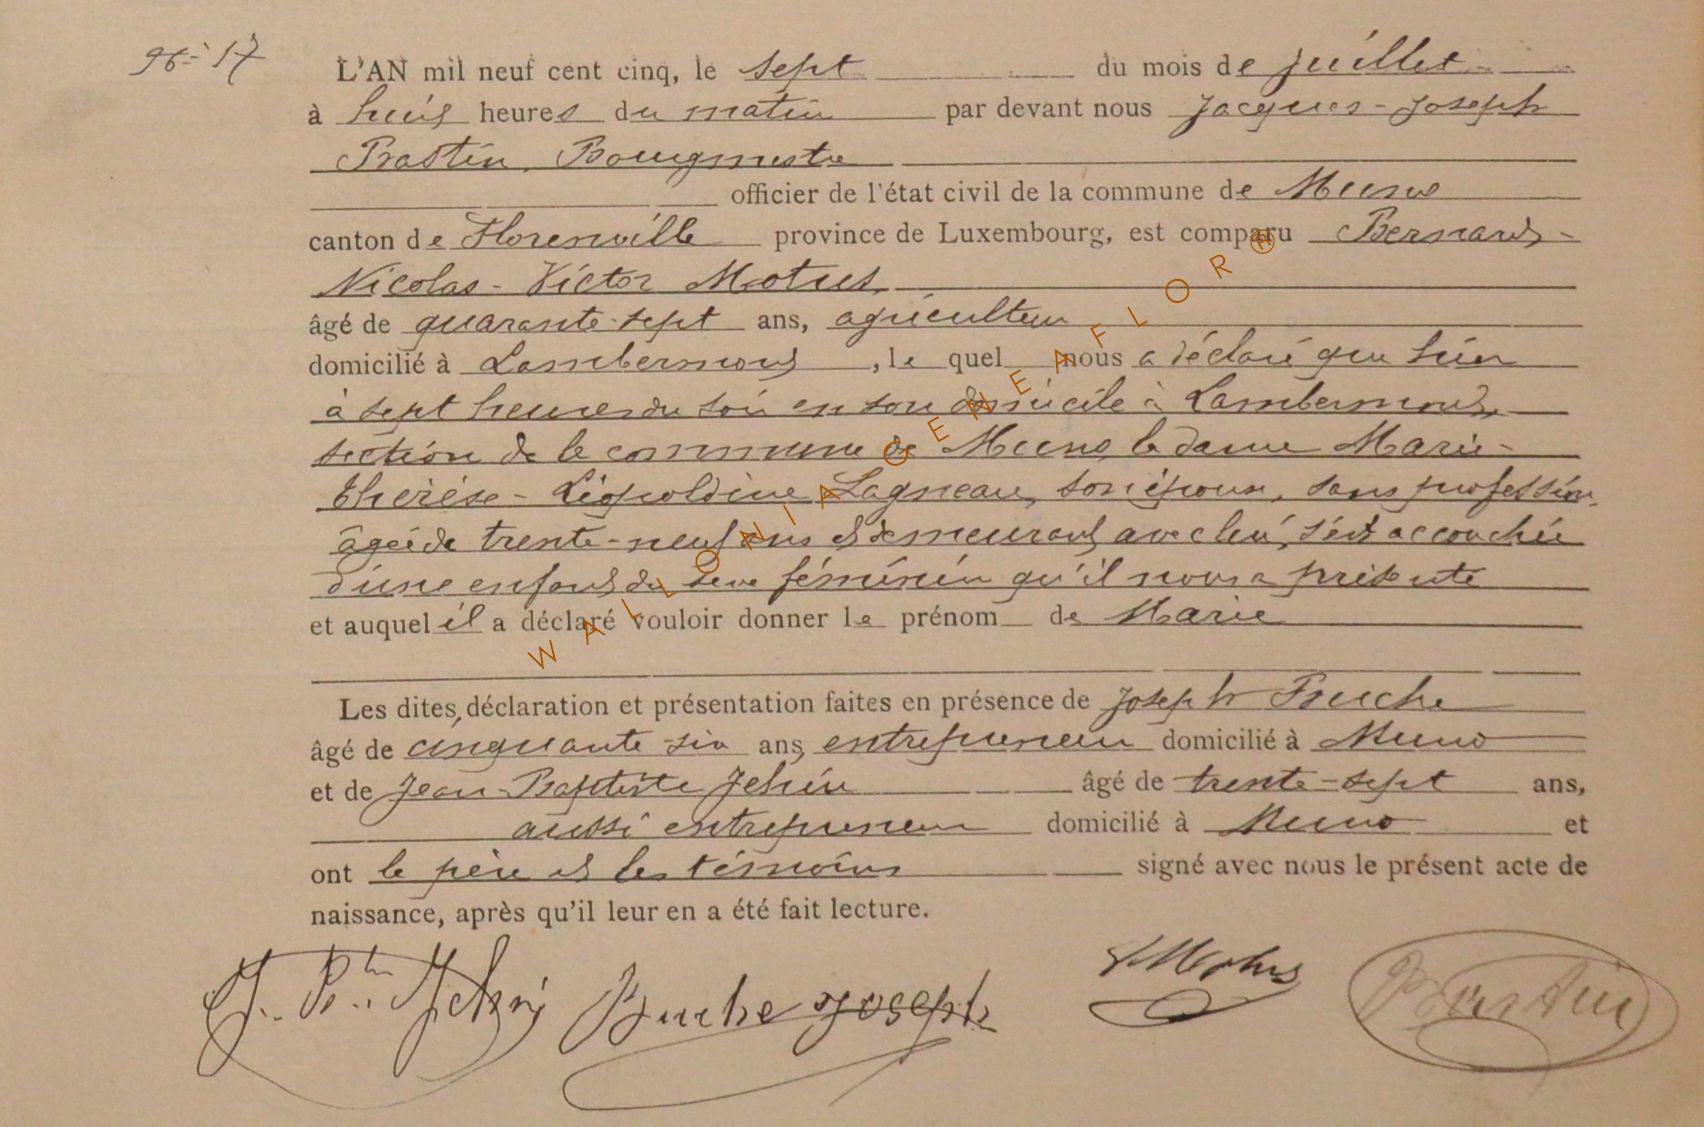 N° 17
L'AN mil neuf cent cinq, le sept du mois de juillet
à huit heures du matin par devant nous Jacques-Joseph
Bastin, Bourgmestre
officier de l'état civil de la commune de Muno
canton de Florenville province de Luxembourg, est comparu Bernard-
Nicolas-Victor Motus,
âgé de quarante-sept ans, agriculteur
domicilié à Lambermont, le quel nous a déclaré que hier
à sept heures du soir en son domicile à Lambermont,
section de la commune de Muno, la dame Marie-
Thérèse-Léopoldine Lagneau, son épouse, sans profession,
âgée de trente-neuf ans et demeurant avec lui, s'est accouchée
d'une enfant du sexe féminin qu'il nous a présenté
et auquel il a déclaré vouloir donner le prénom de Marie
Les dites, déclaration et présentation faites en présence de Joseph
âgé de cinquante-six ans, entrepreneur domicilié à Muno
et de Jean-Baptiste Jehin âgé de trente-sept ans,
aussi entrepreneur domicilié à Muno et
ont le père et les témoins signé avec nous le présent acte de
naissance, après qu'il leur en a été fait lecture.
J. Bte Jehin Joseph V Motus Bastin
WALLONIA GENEAFLOR®